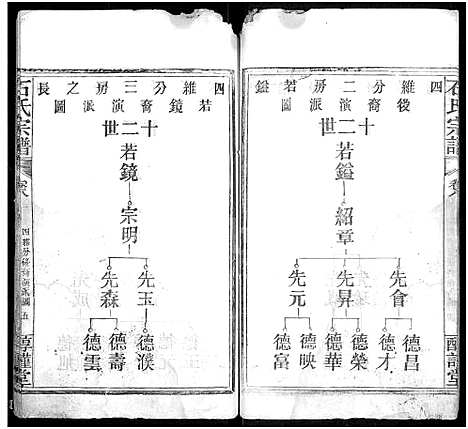 石氏宗譜
四維分二房若鎰
後裔演派圖
十二世
若鎰
紹章
先會 先昇 先元
德昌 德才 德榮 德華 德映 德富
四維分三房之長
若鏡裔演派圖
十二世
若鏡
宗明
先玉 先森
德濮 德壽 德雲
石氏宗譜
卷八
醇謹堂